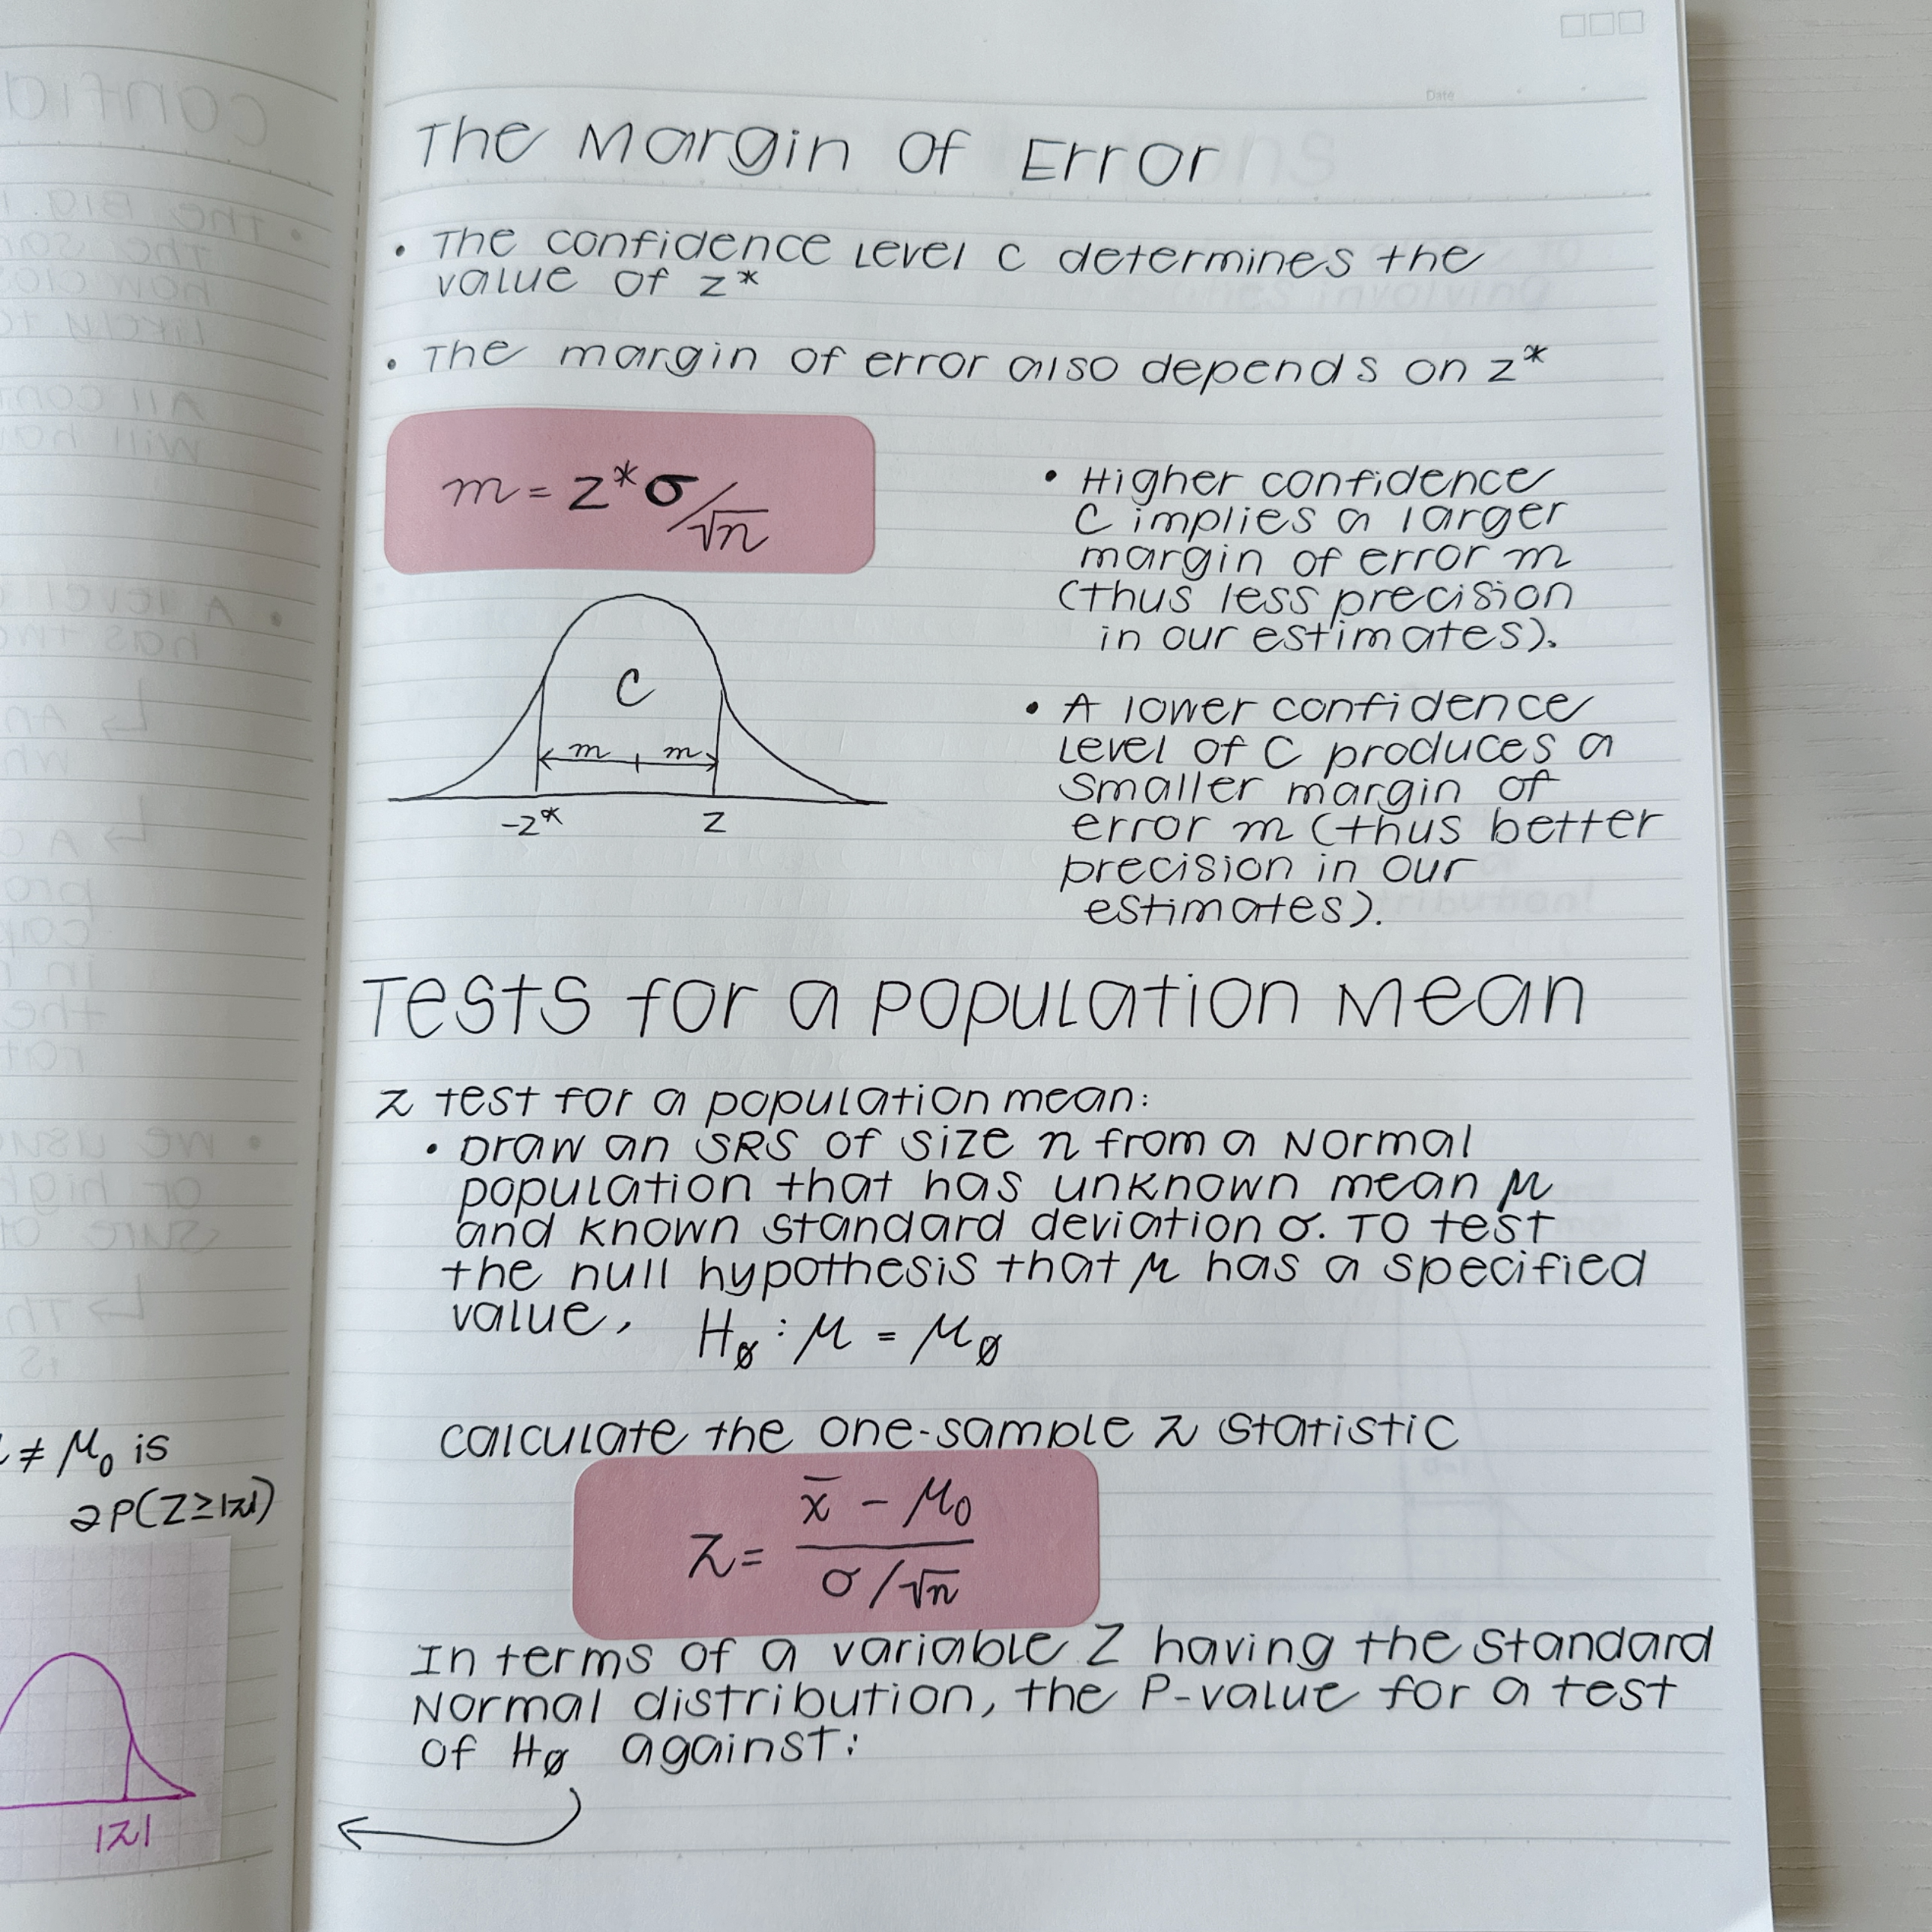 Date
The Margin Of Error
• The confidence Level C determines the
value of z*
• The margin of error also depends on z*
m = z*σ/√n
• Higher confidence
C implies a larger
margin of error m
(thus less precision
in our estimates).
C
m m
-z* z
• A lower confidence
Level of C produces a
smaller margin of
error m (thus better
precision in our
estimates).
Tests for a population Mean
z test for a population mean:
• Draw an SRS of size n from a Normal
population that has unknown mean μ
and known standard deviation σ. To test
the null hypothesis that μ has a specified
value, H∅ : μ = μ∅
calculate the one-sample z statistic
z = x̄ - μ0 / σ/√n
In terms of a variable Z having the Standard
Normal distribution, the P-value for a test
of H∅ against:
≠ μ0 is
2P(Z≥|z|)
|z|